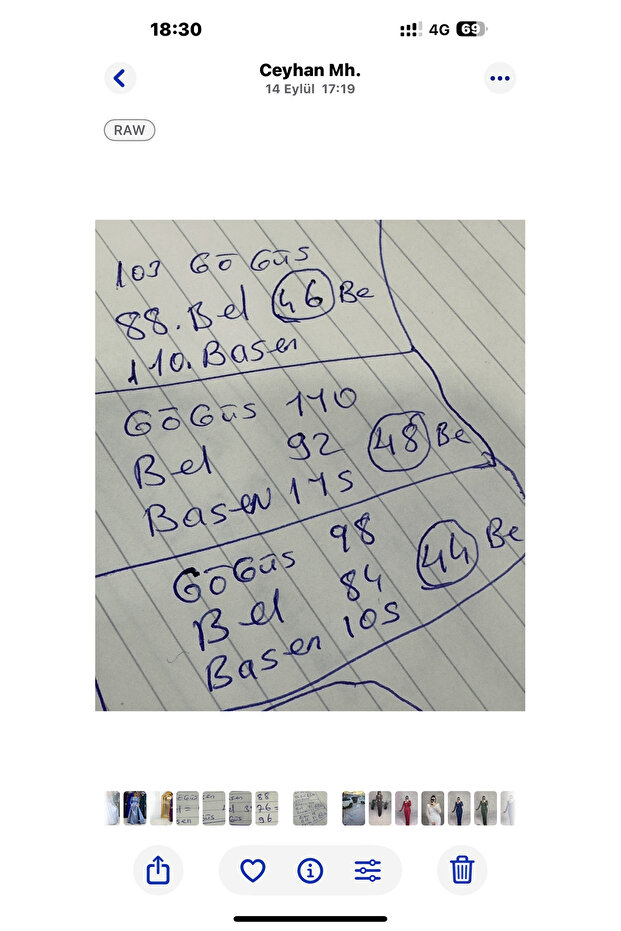 18:30
4G 69
Ceyhan Mh.
14 Eylül 17:19
RAW
103 GöGüs
88. Bel 46 Be
110. Basen
GöGüs 110
Bel 92 48 Be
Basen 115
GöGüs 98
Bel 84 44 Be
Basen 105